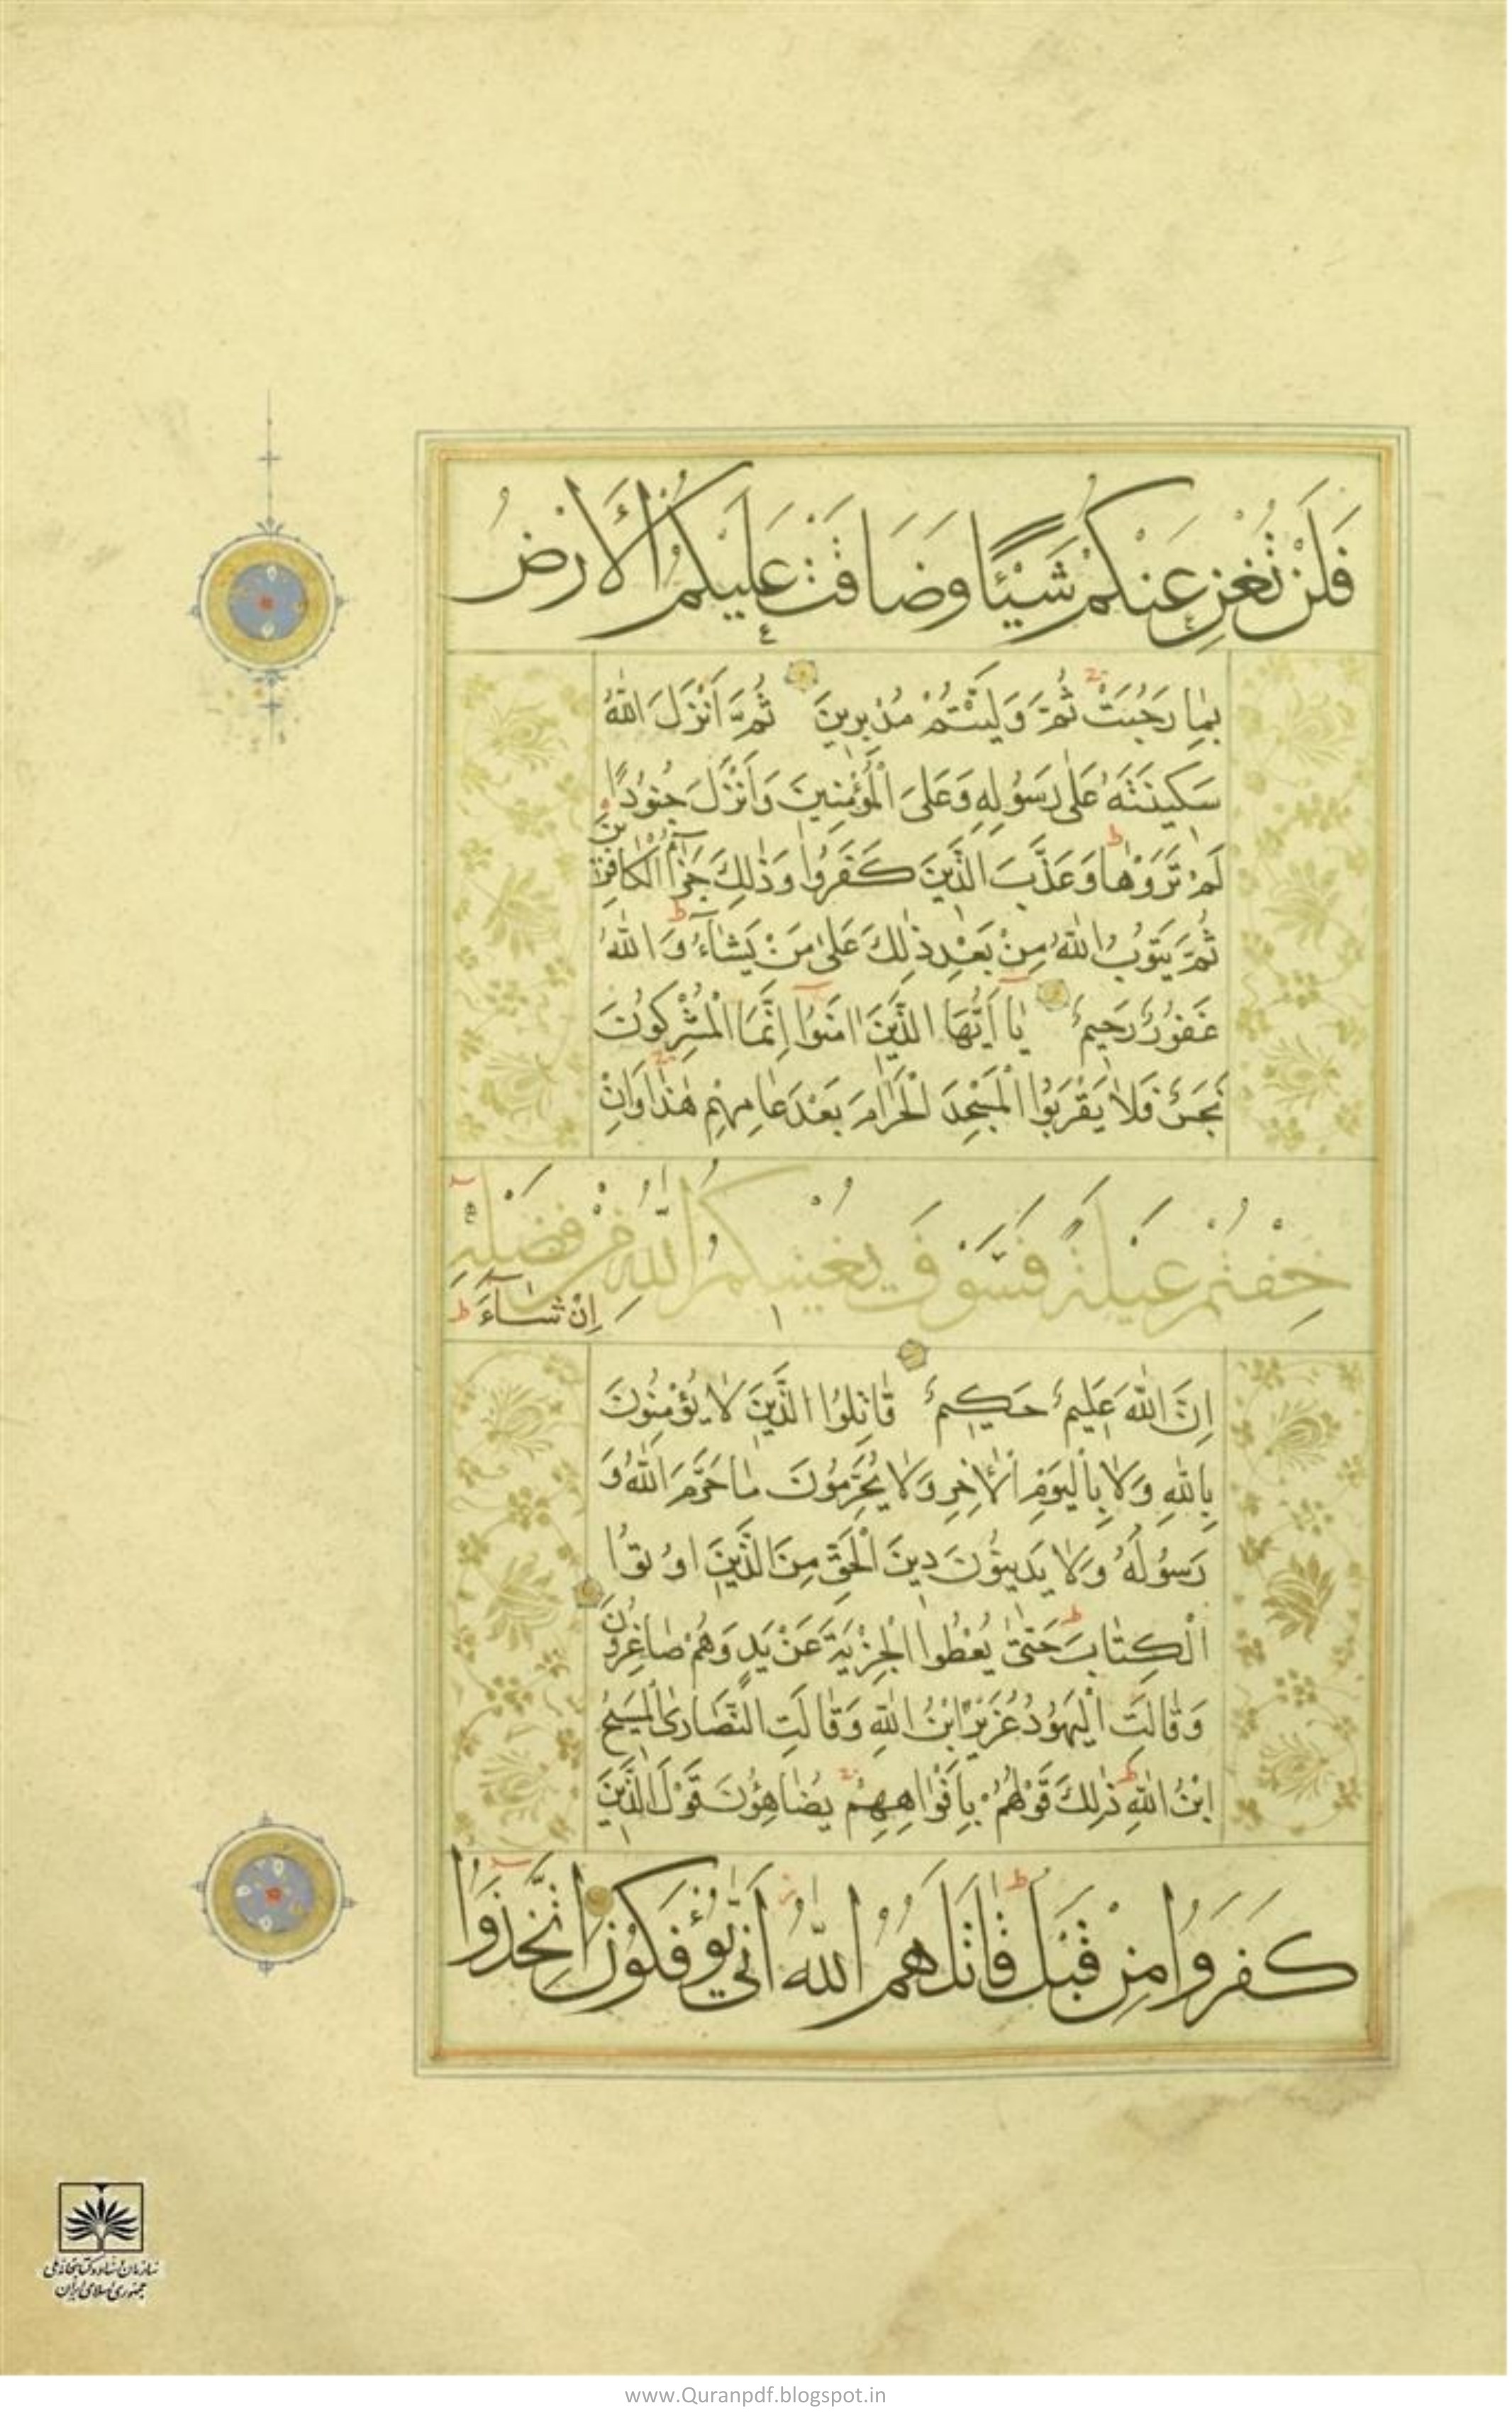 فَلَنْ تُغْنِ عَنْكُمْ شَيْئًا وَضَاقَتْ عَلَيْكُمُ الْأَرْضُ
بِمَا رَحُبَتْ ثُمَّ وَلَّيْتُمْ مُدْبِرِينَ ثُمَّ أَنْزَلَ اللّٰهُ
سَكِينَتَهُ عَلَىٰ رَسُولِهِ وَعَلَى الْمُؤْمِنِينَ وَأَنْزَلَ جُنُودًا
لَمْ تَرَوْهَا وَعَذَّبَ الَّذِينَ كَفَرُوا وَذٰلِكَ جَزَآءُ الْكَافِرِينَ
ثُمَّ يَتُوبُ اللّٰهُ مِنْ بَعْدِ ذٰلِكَ عَلَىٰ مَنْ يَشَآءُ وَاللّٰهُ
غَفُورٌ رَحِيمٌ يَا أَيُّهَا الَّذِينَ اٰمَنُوا إِنَّمَا الْمُشْرِكُونَ
نَجَسٌ فَلَا يَقْرَبُوا الْمَسْجِدَ الْحَرَامَ بَعْدَ عَامِهِمْ هٰذَا وَإِنْ
خِفْتُمْ عَيْلَةً فَسَوْفَ يُغْنِيكُمُ اللّٰهُ مِنْ فَضْلِهِ
إِنْ شَآءَ
إِنَّ اللّٰهَ عَلِيمٌ حَكِيمٌ قَاتِلُوا الَّذِينَ لَا يُؤْمِنُونَ
بِاللّٰهِ وَلَا بِالْيَوْمِ الْاٰخِرِ وَلَا يُحَرِّمُونَ مَا حَرَّمَ اللّٰهُ وَ
رَسُولُهُ وَلَا يَدِينُونَ دِينَ الْحَقِّ مِنَ الَّذِينَ اُوتُوا
الْكِتَابَ حَتَّىٰ يُعْطُوا الْجِزْيَةَ عَنْ يَدٍ وَهُمْ صَاغِرُونَ
وَقَالَتِ الْيَهُودُ عُزَيْرٌ ابْنُ اللّٰهِ وَقَالَتِ النَّصَارَى الْمَسِيحُ
ابْنُ اللّٰهِ ذٰلِكَ قَوْلُهُمْ بِأَفْوَاهِهِمْ يُضَاهِؤُنَ قَوْلَ الَّذِينَ
كَفَرُوا مِنْ قَبْلُ قَاتَلَهُمُ اللّٰهُ أَنَّىٰ يُؤْفَكُونَ اتَّخَذُوا
سازمان اسناد و کتابخانه ملی
جمهوری اسلامی ایران
www.Quranpdf.blogspot.in